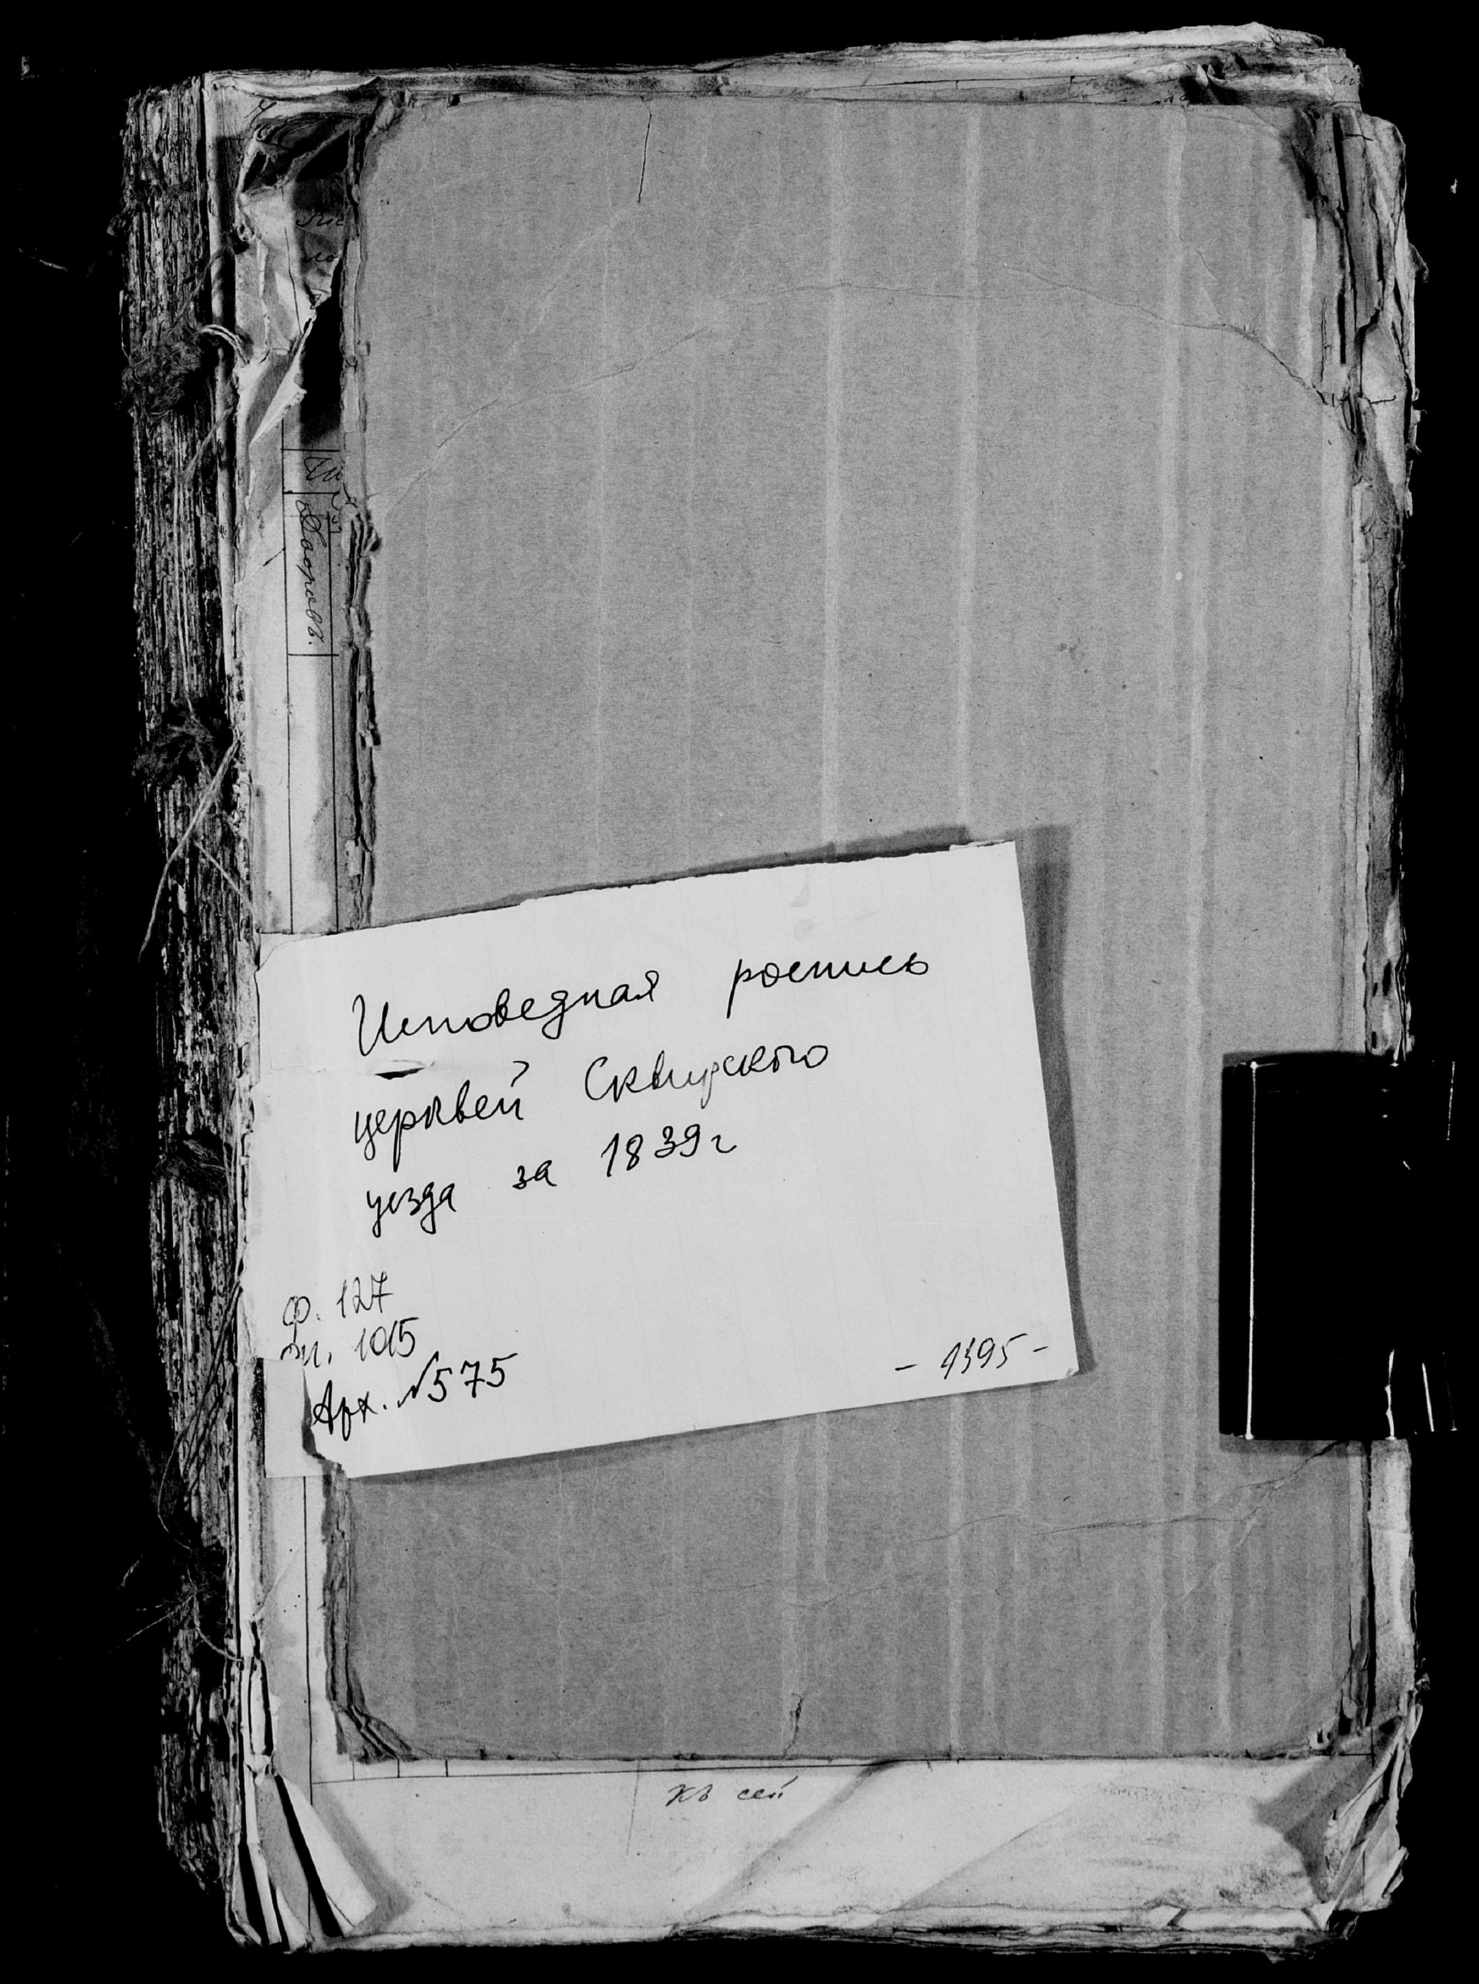 Дворовъ.
Исповедная роспись
церквей Сквирского
уезда за 1839г
ф. 127
оп. 1015
Арх. №575
- 1395 -
къ сей